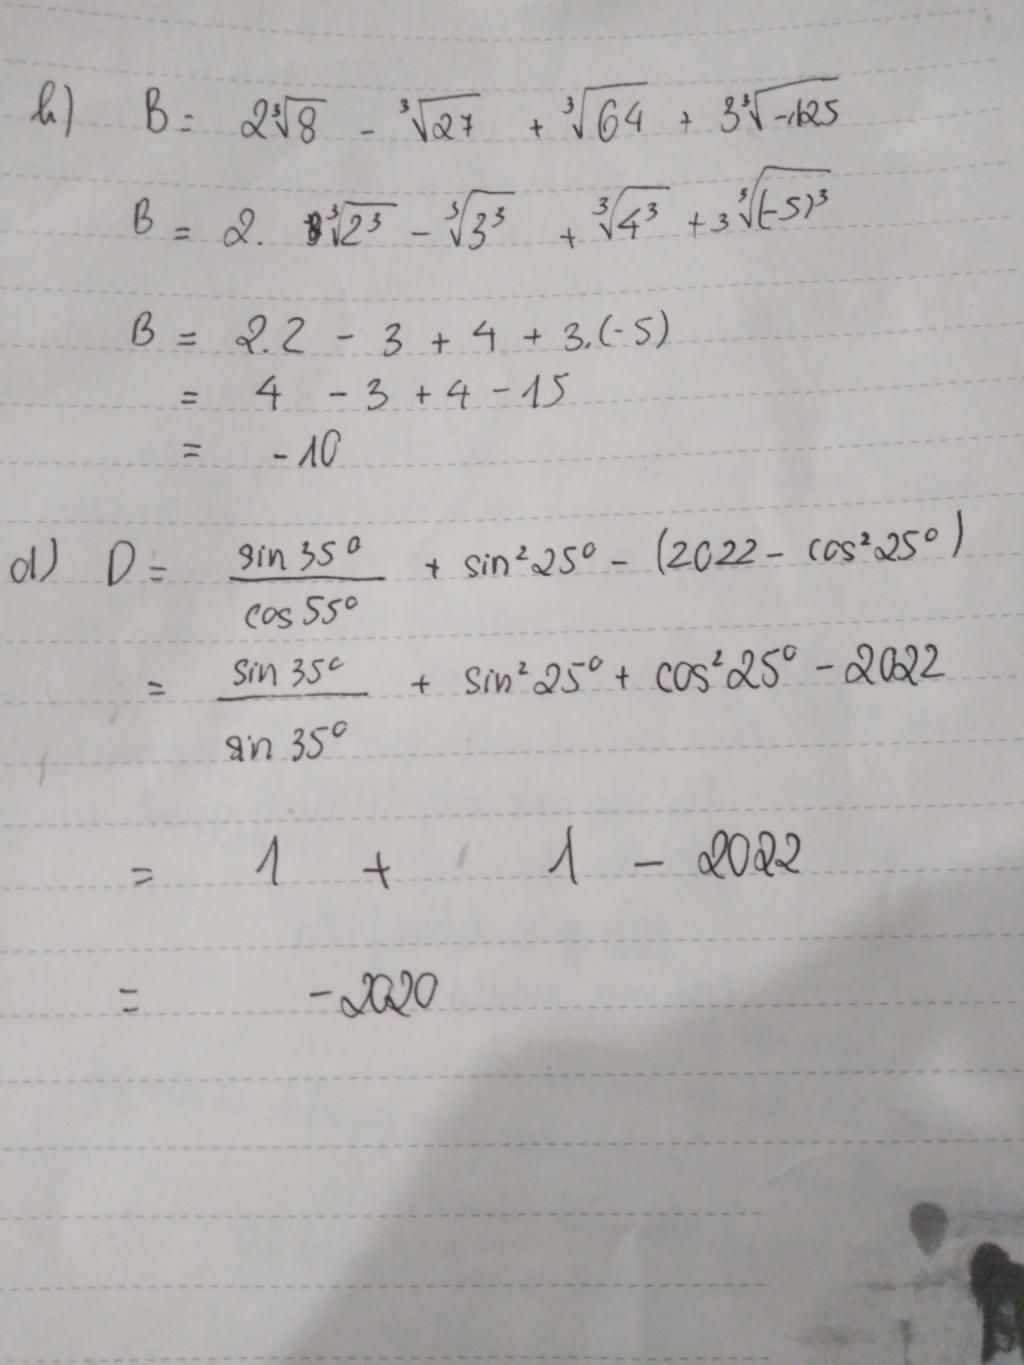 b) B = 2∛8 - ∛27 + ∛64 + 3∛-125
B = 2. ∛2³ - ∛3³ + ∛4³ + 3∛(-5)³
B = 2.2 - 3 + 4 + 3.(-5)
= 4 - 3 + 4 - 15
= -10
d) D = sin 35° / cos 55° + sin² 25° - (2022 - cos² 25°)
= sin 35° / sin 35° + sin² 25° + cos² 25° - 2022
= 1 + 1 - 2022
= -2020